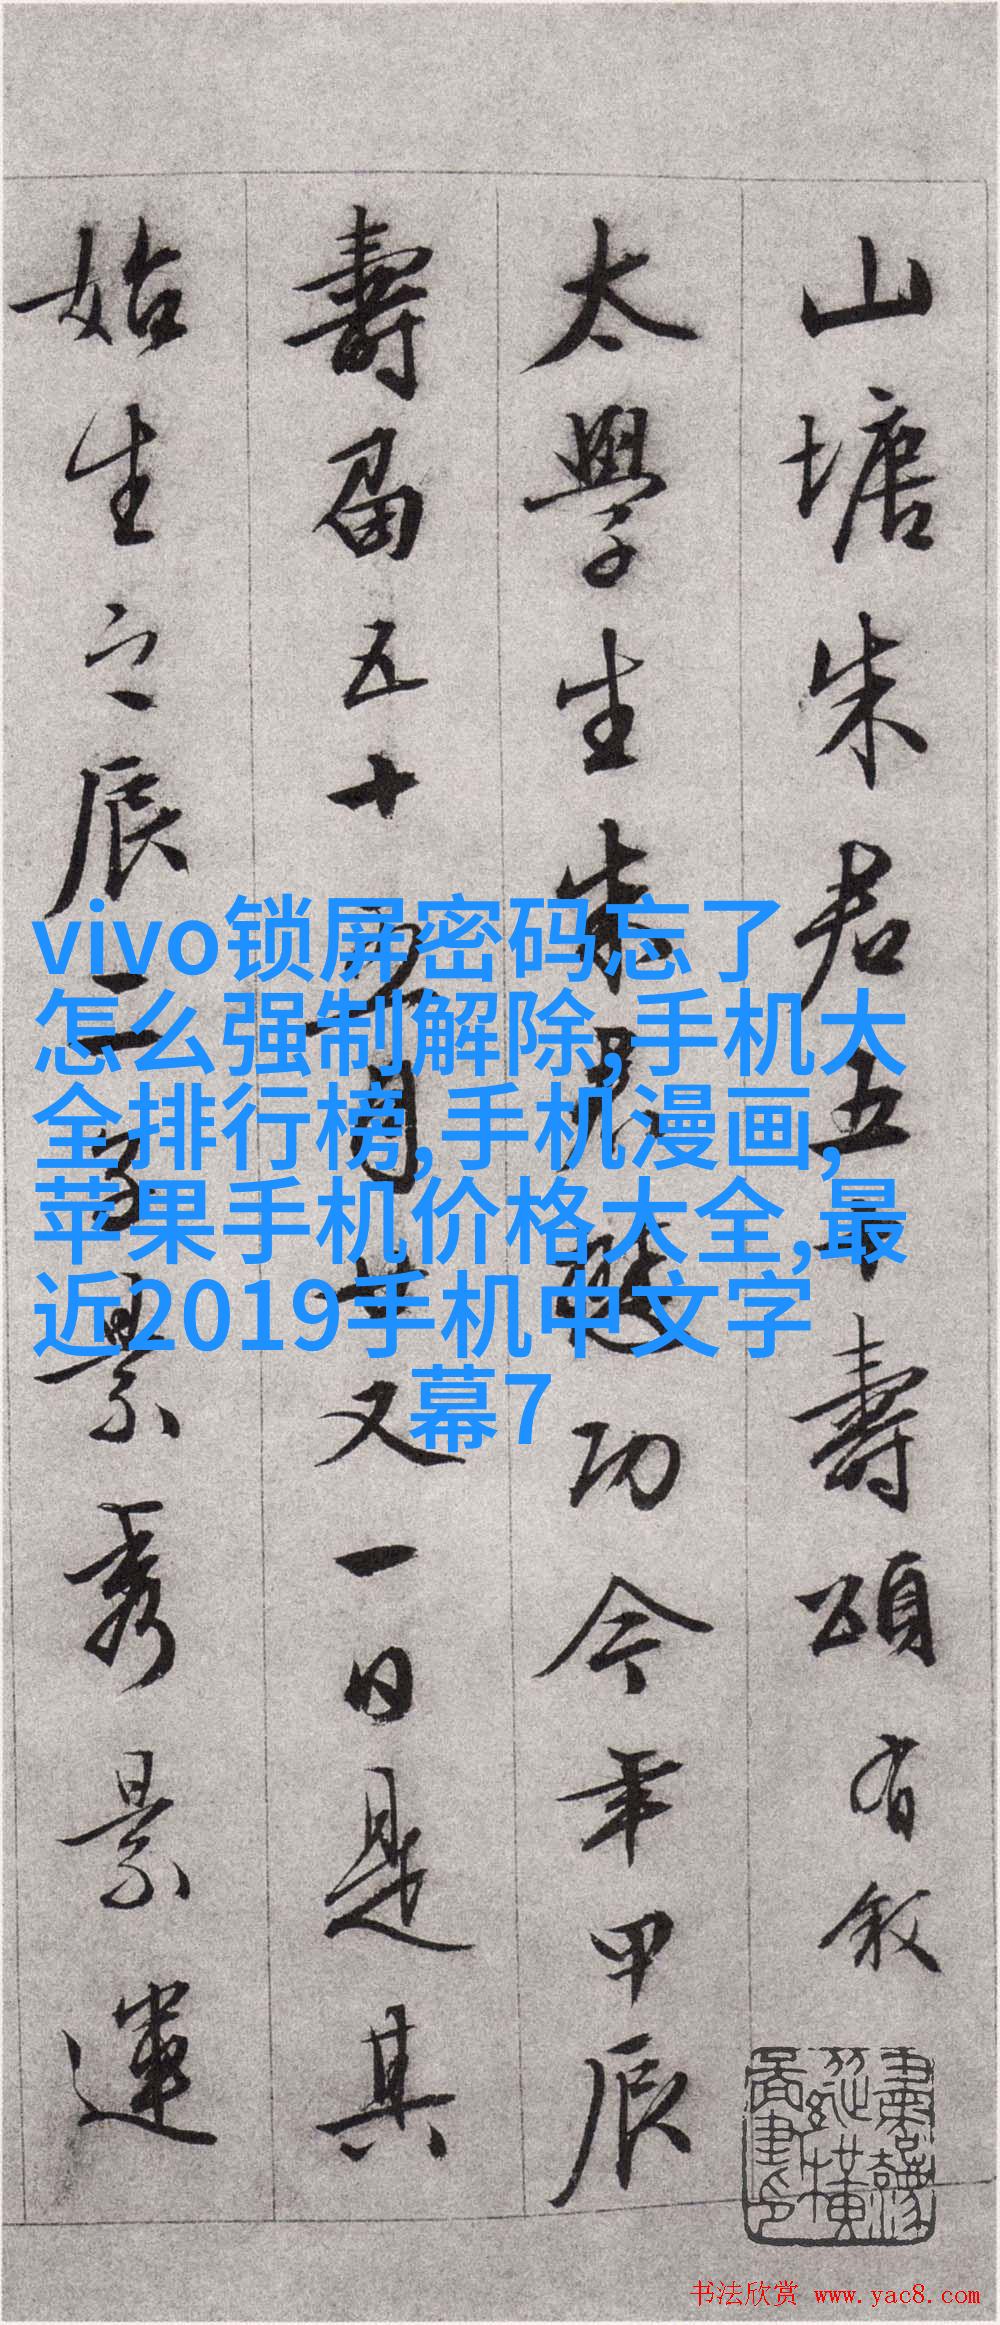 山塘朱君五十壽頌有敘
太學生朱君懋功今年甲辰
壽屆五十五月廿又一日是其
始生之辰一家景秀景運
vivo锁屏密码忘了
怎么强制解除,手机大
全排行榜,手机漫画,
苹果手机价格大全,最
近2019手机中文字
幕7
书法欣赏 www.yac8.com